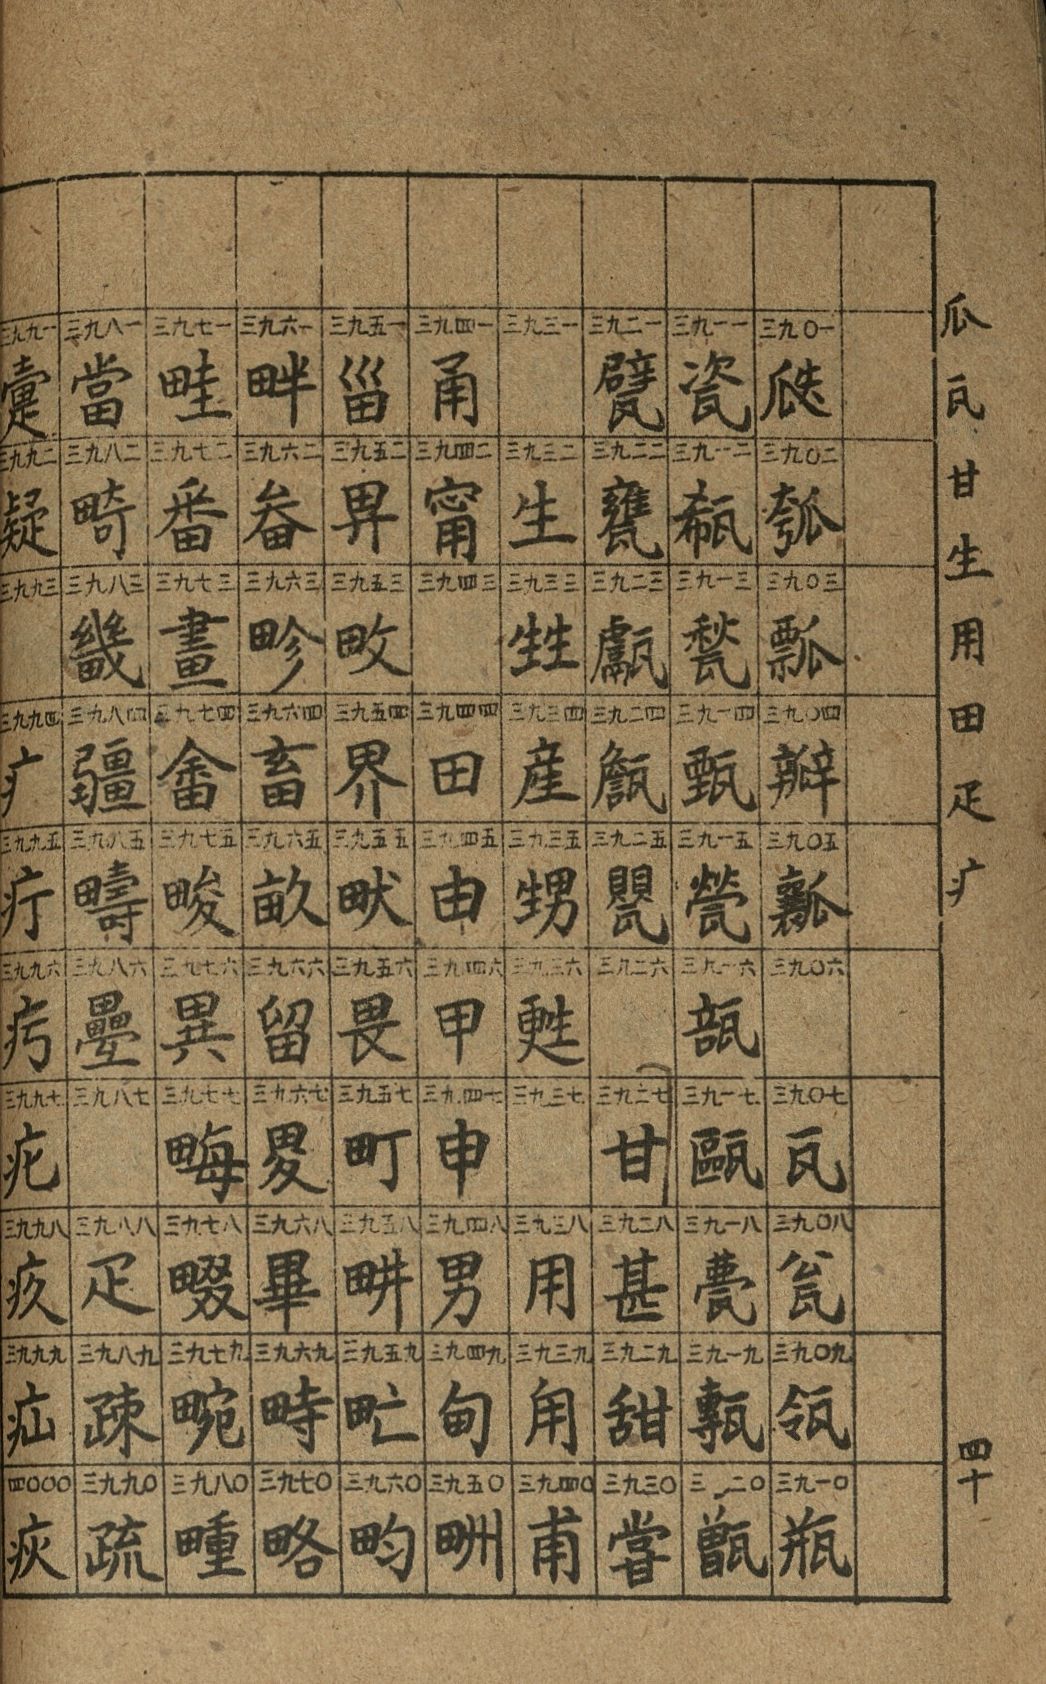 瓜瓦甘生用田疋疒
四十
三九〇一 瓞 三九〇二 瓠 三九〇三 瓢 三九〇四 瓣 三九〇五 瓤 三九〇六 三九〇七 瓦 三九〇八 瓮 三九〇九 瓴 三九一〇 瓶
三九一一 瓷 三九一二 瓻 三九一三 甃 三九一四 甄 三九一五 甇 三九一六 瓿 三九一七 甌 三九一八 甍 三九一九 甎 三九二〇 甑
三九二一 甓 三九二二 甕 三九二三 甗 三九二四 甔 三九二五 甖 三九二六 三九二七 甘 三九二八 甚 三九二九 甜 三九三〇 甞
三九三一 三九三二 生 三九三三 甡 三九三四 産 三九三五 甥 三九三六 甦 三九三七 三九三八 用 三九三九 甪 三九四〇 甫
三九四一 甬 三九四二 甯 三九四三 三九四四 田 三九四五 由 三九四六 甲 三九四七 申 三九四八 男 三九四九 甸 三九五〇 甽
三九五一 甾 三九五二 畀 三九五三 畋 三九五四 界 三九五五 畎 三九五六 畏 三九五七 町 三九五八 畊 三九五九 甿 三九六〇 畇
三九六一 畔 三九六二 畚 三九六三 畛 三九六四 畜 三九六五 畝 三九六六 留 三九六七 畟 三九六八 畢 三九六九 畤 三九七〇 略
三九七一 畦 三九七二 番 三九七三 畫 三九七四 畬 三九七五 畯 三九七六 異 三九七七 畮 三九七八 畷 三九七九 畹 三九八〇 畽
三九八一 當 三九八二 畸 三九八三 畿 三九八四 疆 三九八五 疇 三九八六 疊 三九八七 三九八八 疋 三九八九 疎 三九九〇 疏
三九九一 疐 三九九二 疑 三九九三 三九九四 疒 三九九五 疔 三九九六 疞 三九九七 疕 三九九八 疚 三九九九 疝 四〇〇〇 疢